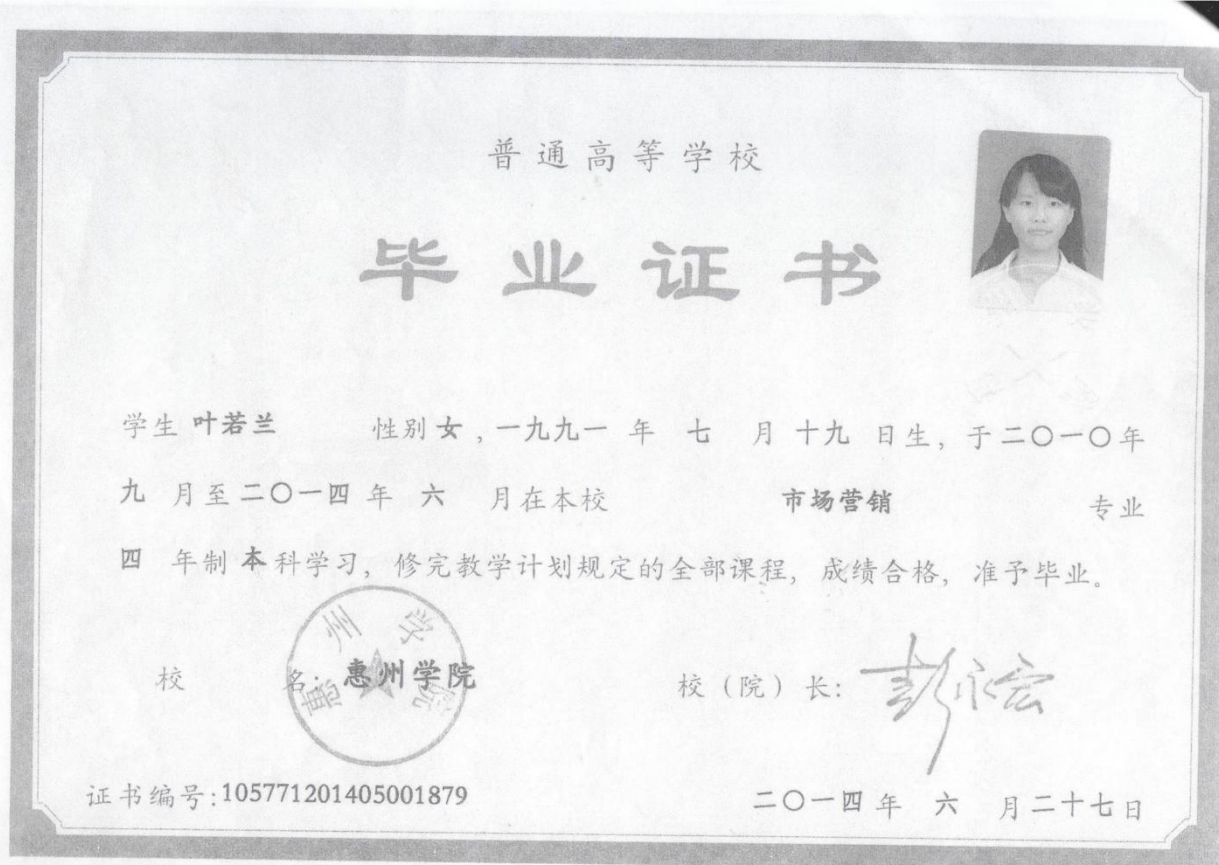 普通高等学校
毕业证书
学生 叶若兰 性别 女 ，一九九一 年 七 月 十九 日生，于 二〇一〇 年
九 月至 二〇一四 年 六 月在本校 市场营销 专业
四 年制 本 科学习，修完教学计划规定的全部课程，成绩合格，准予毕业。
校 名：惠州学院 校（院）长：彭永宏
惠州学院
证书编号：105771201405001879 二〇一四 年 六 月 二十七 日